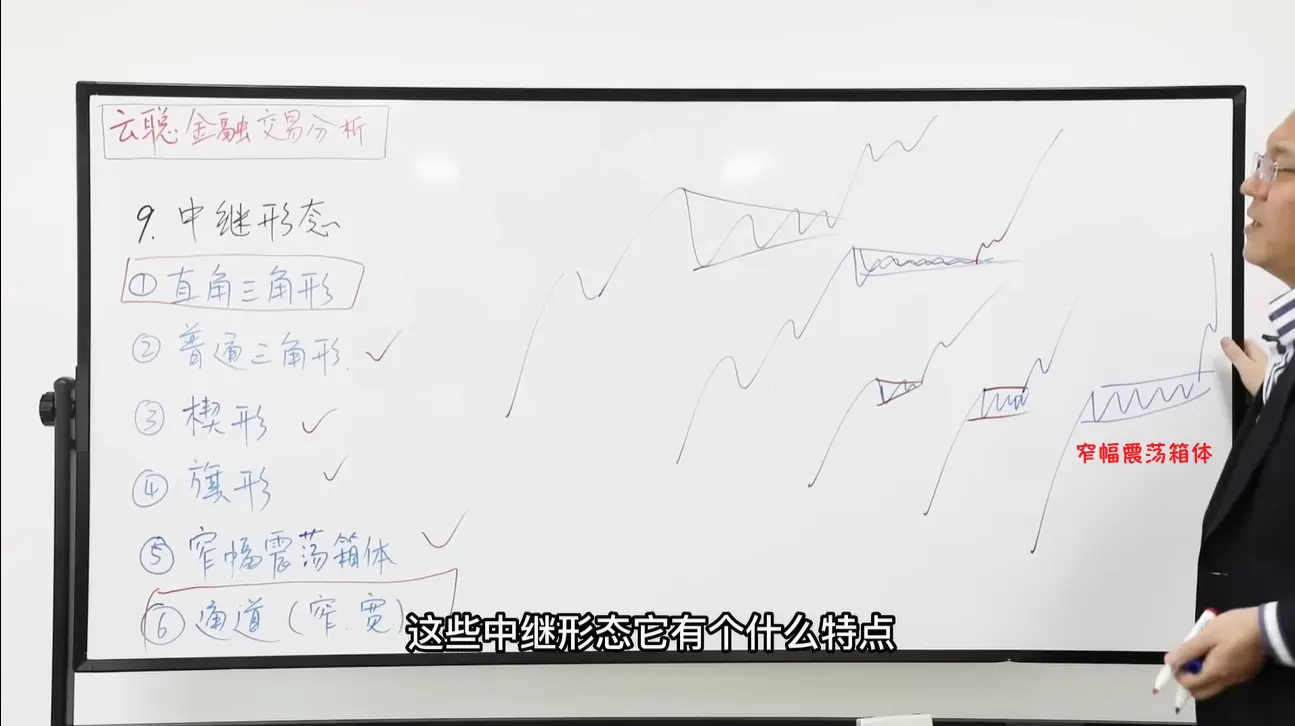 云聪金融交易分析
9. 中继形态
① 直角三角形
② 普通三角形
③ 楔形
④ 旗形
⑤ 窄幅震荡箱体
⑥ 通道(窄、宽)
窄幅震荡箱体
这些中继形态它有个什么特点